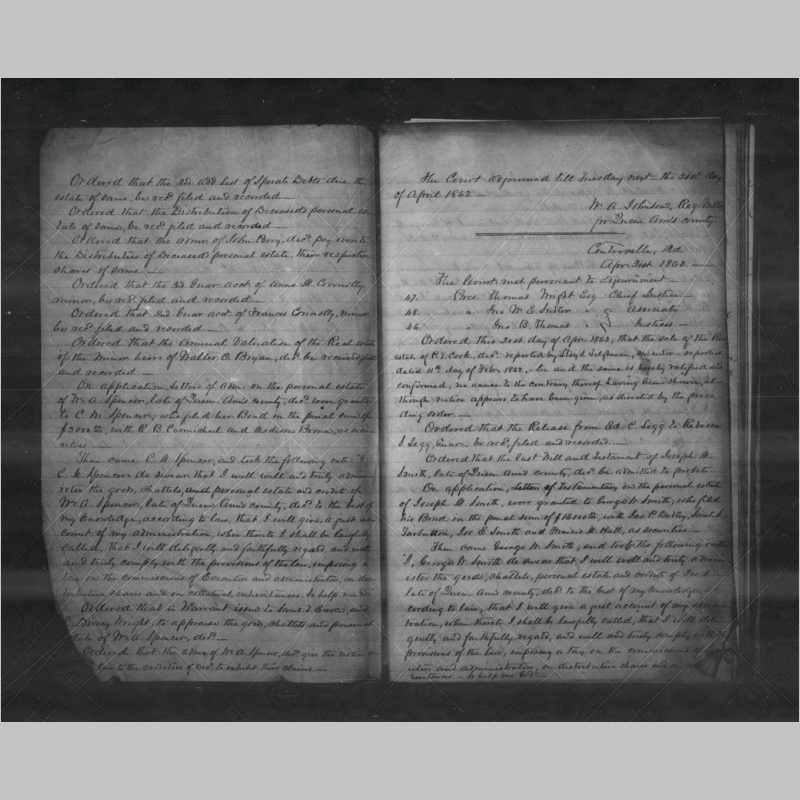 Ordered that the 2nd add List of Sperate Debts due the
estate of same, be recd filed and recorded
Ordered that the Distribution of Deceaseds personal es-
tate of same, be recd filed and recorded
Ordered that the admr of John Perry, decd pay over to
the Distributees of Deceaseds personal estate, their respective
shares of same
Ordered that the 3rd Guar acct of Anna M. Connolly
minor, be recd filed and recorded
Ordered that 3rd Guar acct of Francis Connolly, minor
be recd filed and recorded
Ordered that the annual Valuation of the Real estate
of the minor heirs of Walter O. Bryan, decd be received filed
and recorded
On application Letters of adm. on the personal estate
of Wm A. Spencer, late of Queen Ann's County, decd were granted
to C. M. Spencer, who filed her Bond in the penal sum of
with R. B. Carmichael and Madison Brown, as secu-
rities
Then came C. M. Spencer, and took the following oath "I
C. M. Spencer do swear that I will well and truly admin
ister the goods, chattels, and personal estate and credits of
Wm A. Spencer, late of Queen Ann's County, decd to the best of
my knowledge, according to law, that I will give a just ac-
count of my administration, when thereto I shall be lawfully
called, that I will diligently and faithfully regard, and well
and truly comply with the provisions of the law, imposing a
tax on the commissions of Executors and administrators, on dis-
tributive shares and on collateral inheritances. So help me God
Ordered that a Warrant issue to and
Wright, to appraise the goods, chattels and personal
estate of Wm A. Spencer, decd
Ordered that the admx of Wm A. Spencer, decd give the notice
law to the creditors of decd to exhibit their claims
The Court adjourned till Tuesday next the 21st day
of April 1863
W. A. Johnson, Reg. Wills
for Queen Ann's County
Centreville, Md
Apr. 21st 1863.
The Court met pursuant to adjournment
47. Prest Thomas Wright Esq Chief Justice
48. " Jno W. E. Sudler " } Associate
46. " Jno B. Thomas " } Justices
Ordered this 21st day of April 1863, that the sale of the Real
estate of P. J. Cook, decd reported by Lloyd executor reported
dated 11th day of Feby 1863, be and the same is hereby ratified and
confirmed, no cause to the contrary thereof having been shown, al-
though notice appears to have been given, as directed by the prece
ding order
Ordered that the Release from Ed. C. Legg to Rebecca
S. Legg, Guar. be recd filed and recorded
Ordered that the Last Will and Testament of Joseph H.
Smith, late of Queen Ann's County, decd be admitted to probate
On application, Letters of Testamentary on the personal estate
of Joseph H. Smith, were granted to George W. Smith, who filed
his Bond in the penal sum of with
Tarbutton, Jos. E. Smith and H. Hall, as securities
Then came George W. Smith, and took the following oath
"I, George W. Smith do swear that I will well and truly admin
ister the goods, chattels, personal estate and credits of
late of Queen Ann's County, decd to the best of my knowledge, ac
cording to law, that I will give a just account of my adminis
tration, when thereto I shall be lawfully called, that I will dili
gently and faithfully regard, and well and truly comply with the
provisions of the law, imposing a tax on the commissions of
and administrators, on distributive shares and on
So help me God"